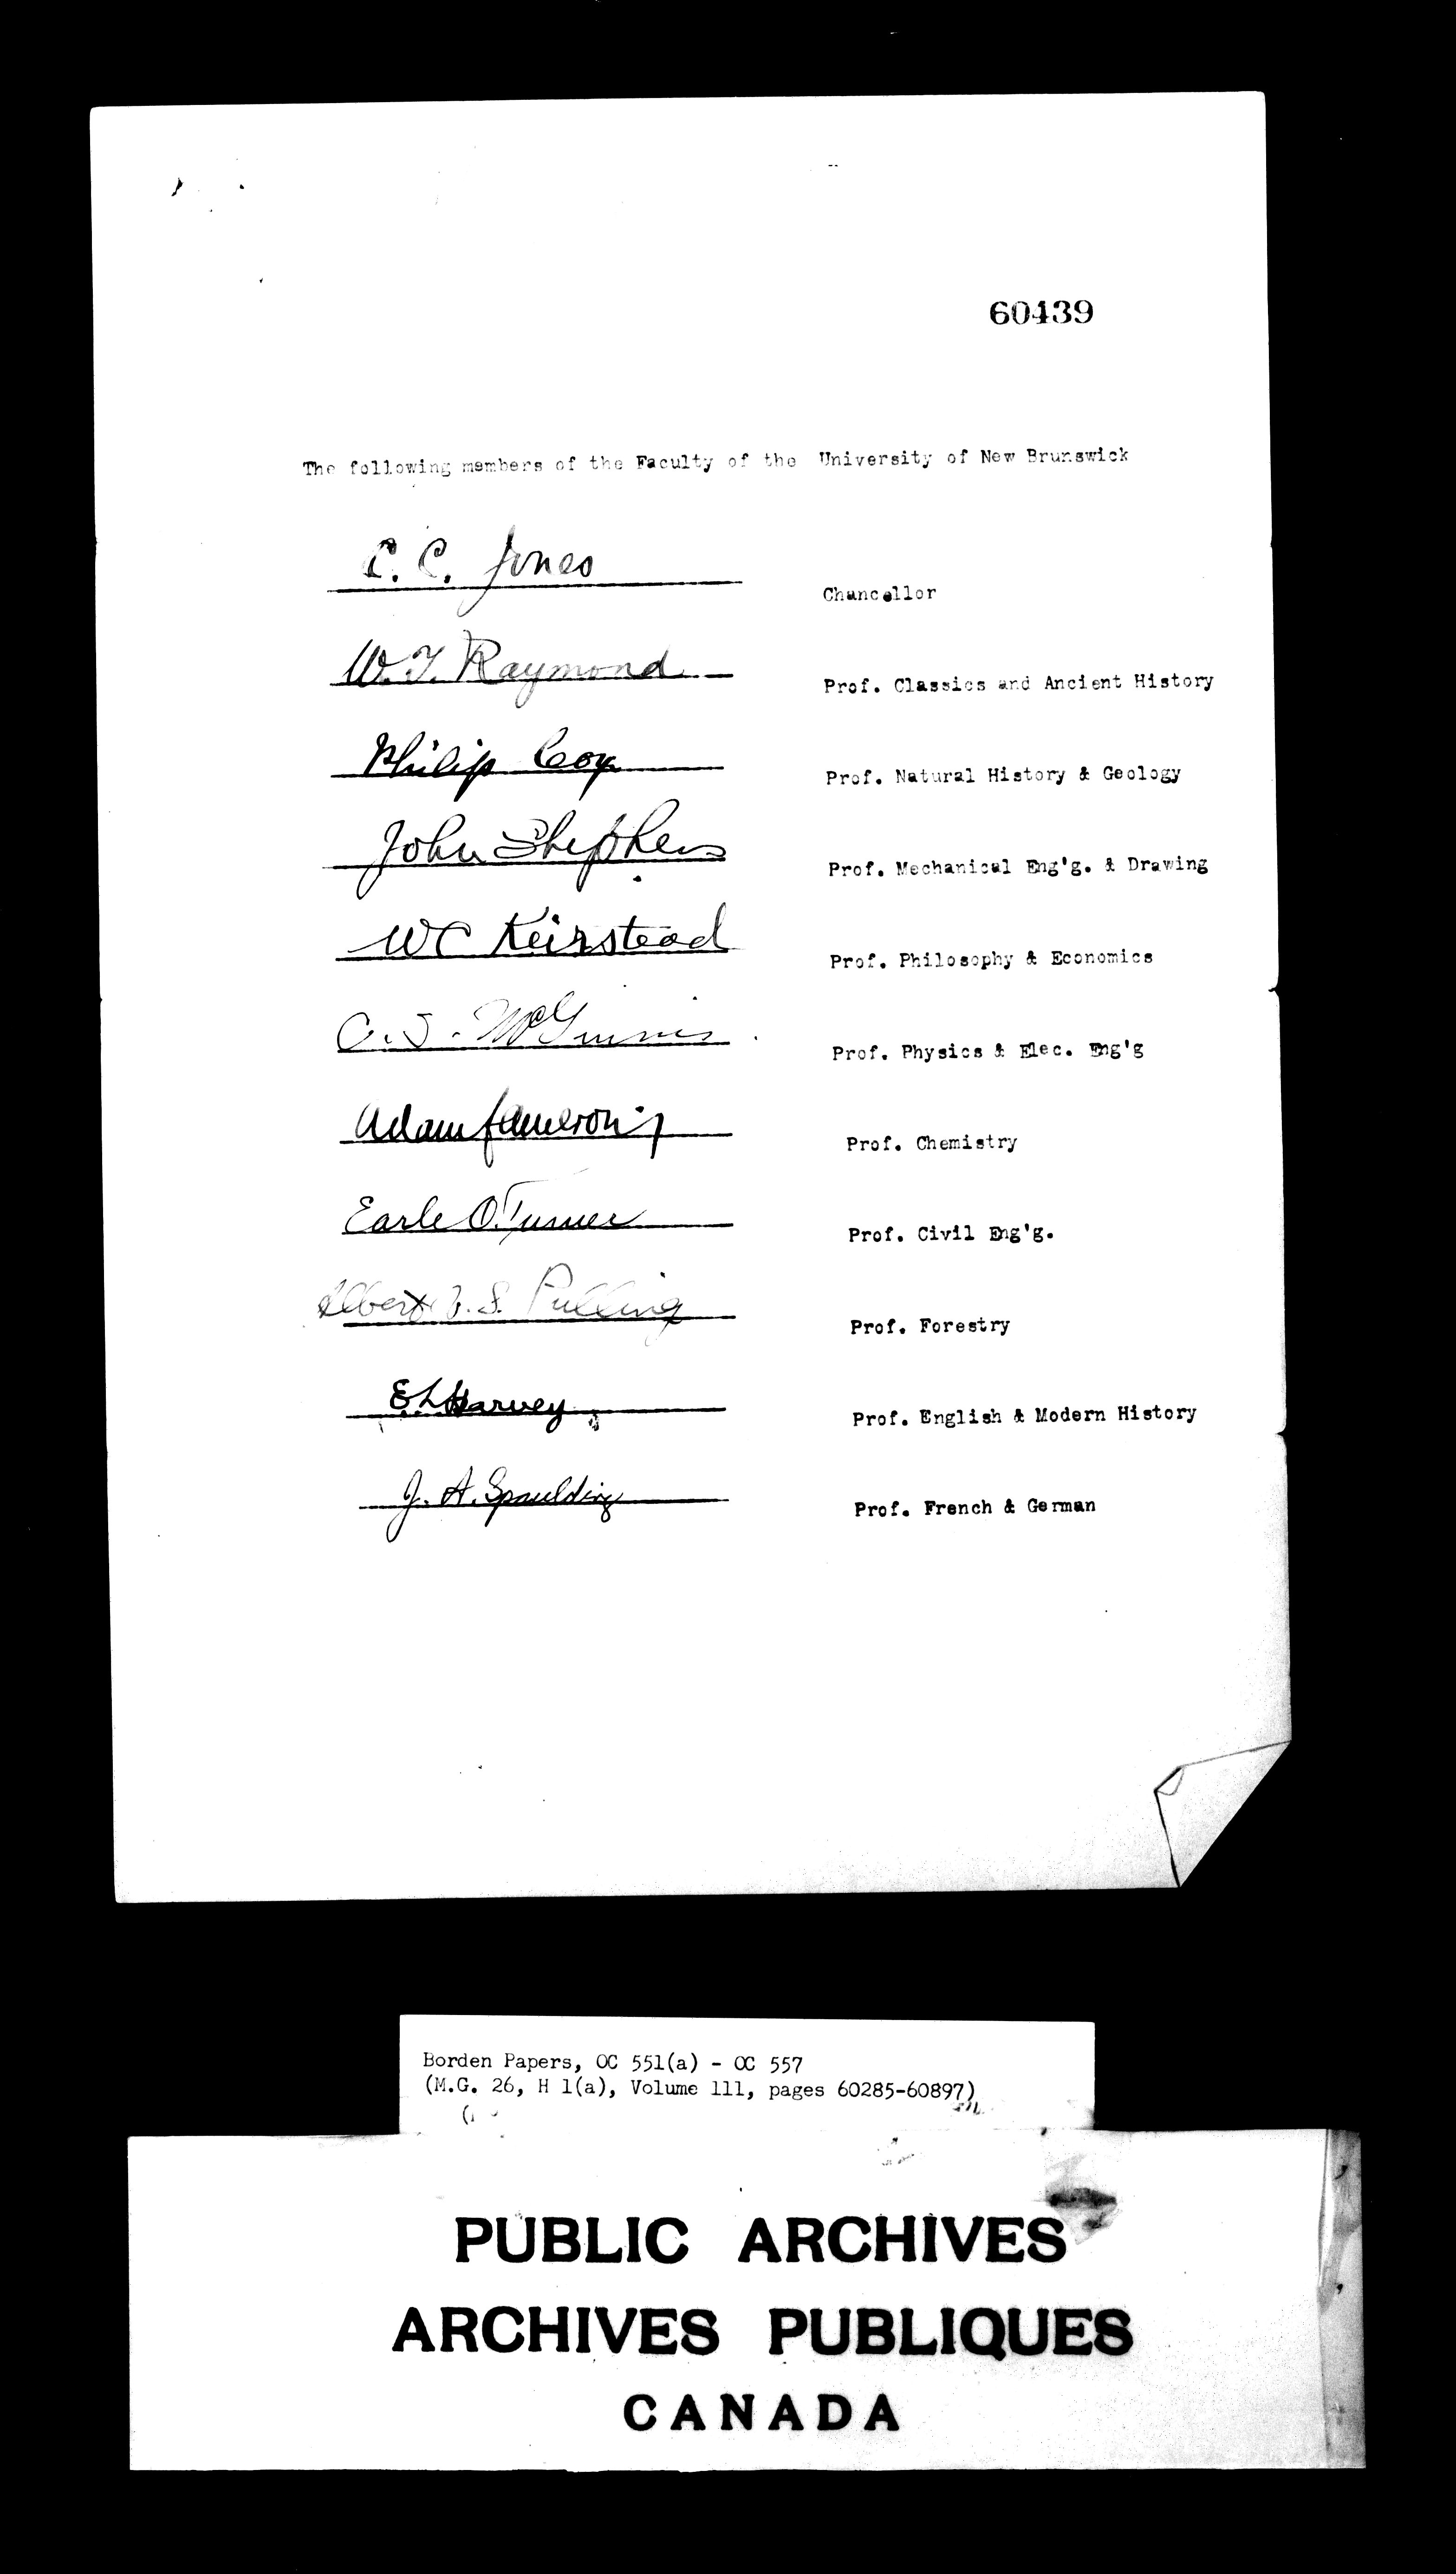 60439
The following members of the Faculty of the University of New Brunswick
C. C. Jones Chancellor
W. T. Raymond Prof. Classics and Ancient History
Philip Cox Prof. Natural History & Geology
John Stephens Prof. Mechanical Eng'g. & Drawing
WC Keirstead Prof. Philosophy & Economics
McGinnis Prof. Physics & Elec. Eng'g
Adam Cameron Prof. Chemistry
Earle O. Turner Prof. Civil Eng'g.
Albert S. Pulling Prof. Forestry
E L Harvey Prof. English & Modern History
J. A. Spaulding Prof. French & German
Borden Papers, OC 551(a) - OC 557
(M.G. 26, H 1(a), Volume 111, pages 60285-60897)
PUBLIC ARCHIVES
ARCHIVES PUBLIQUES
CANADA